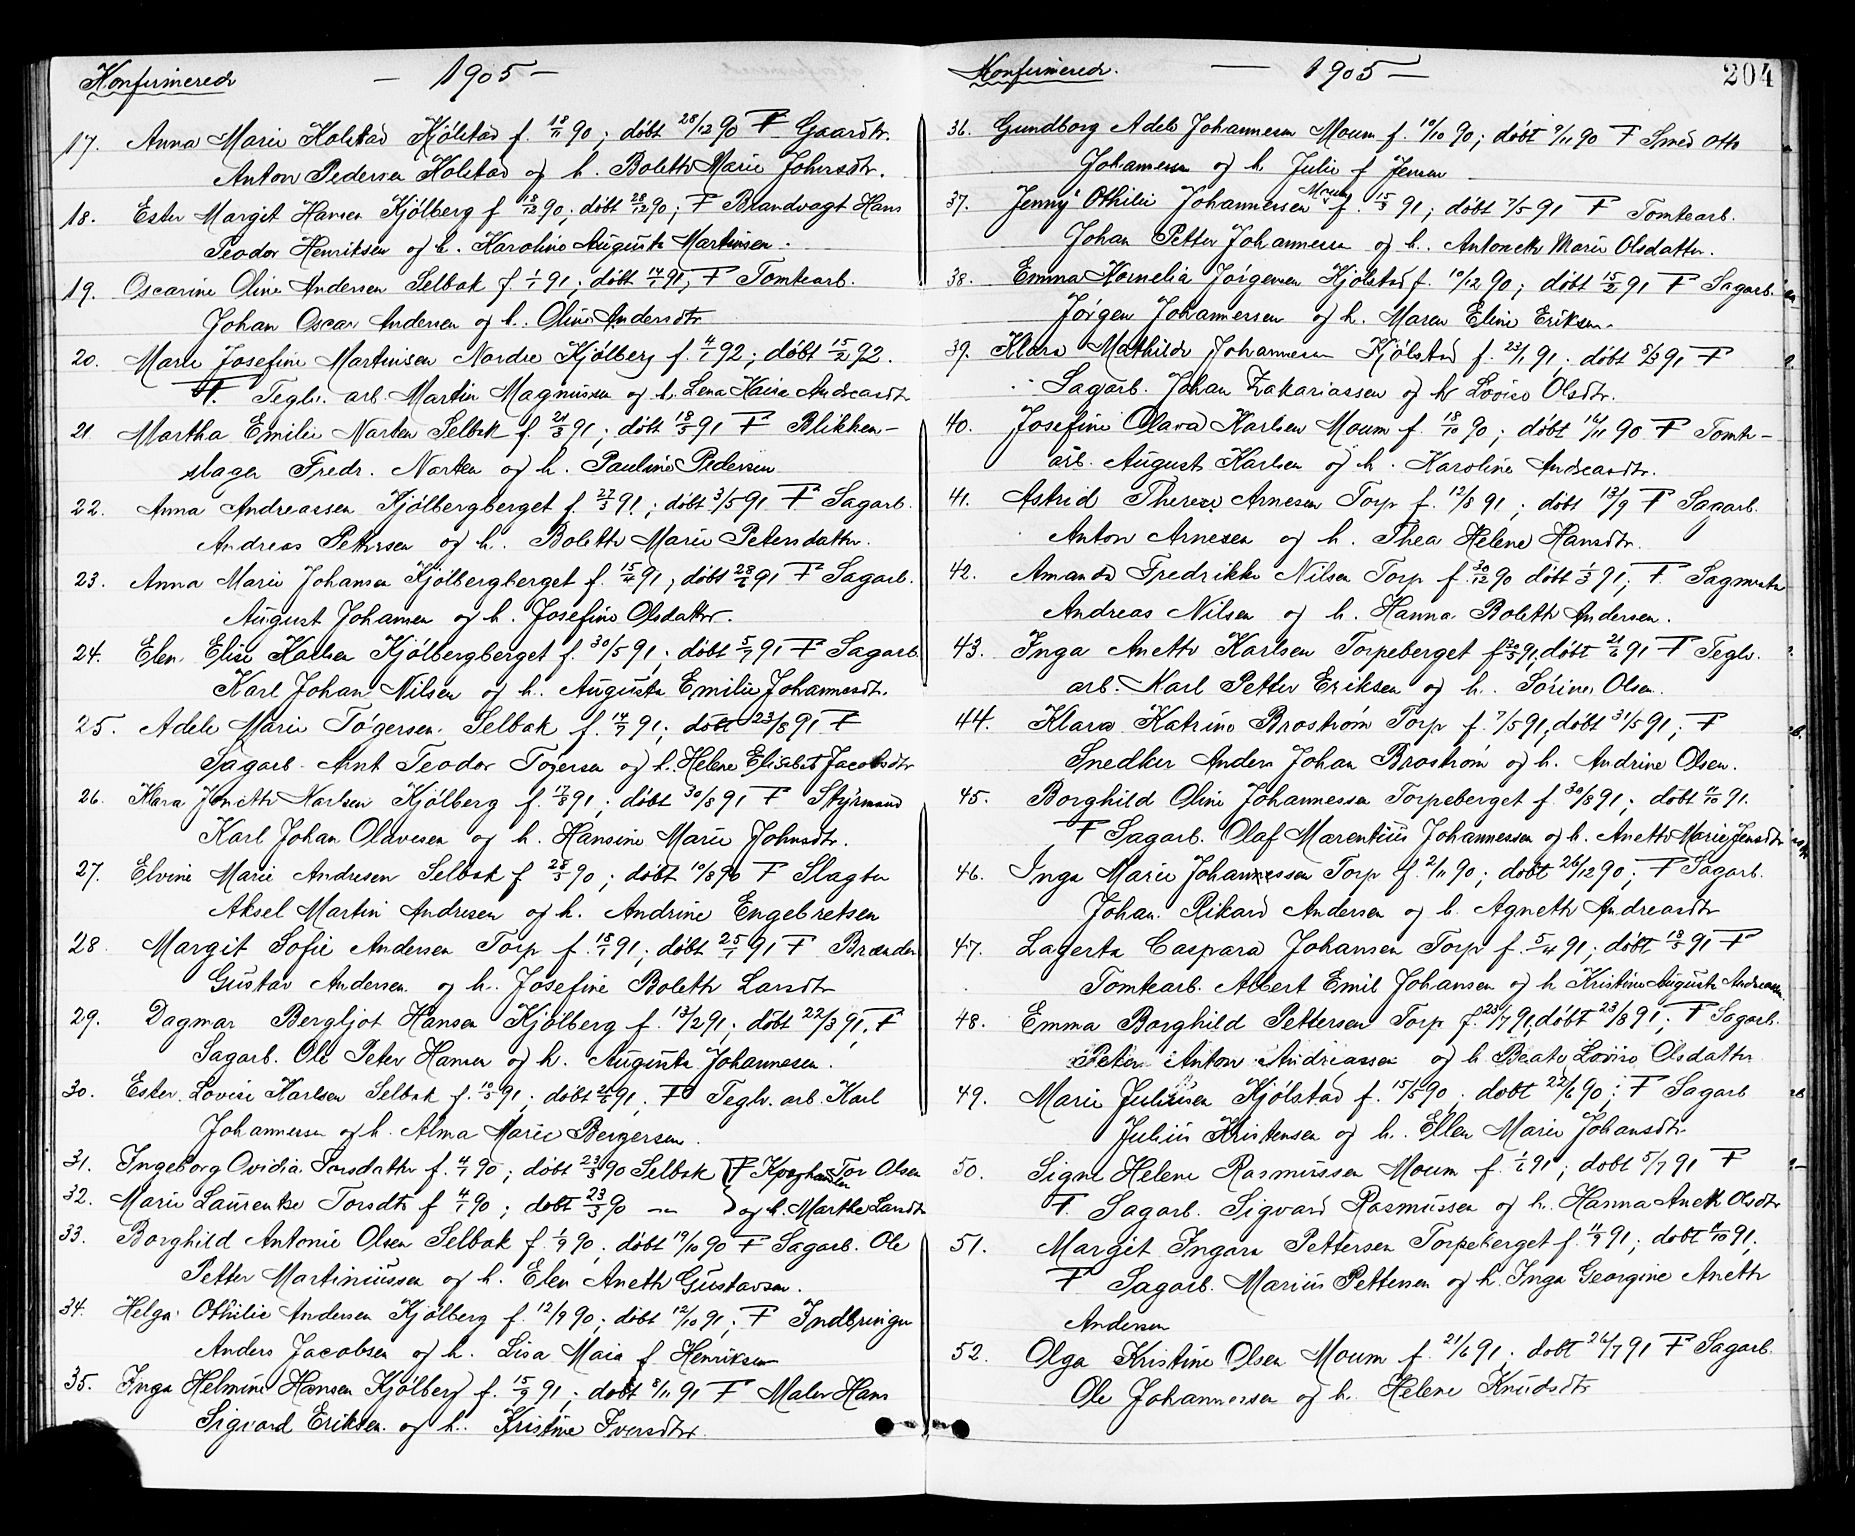 Konfirmerede — 1905 —
17. Anna Marie Holstad Kjølstad f. 18/11 90; døbt 28/12 90 F Gaardbr.
Anton Pedersen Holstad og h. Bolette Marie Johnsdtr.
18. Ester Margit Hansen Kjølberg f 18/12 90; døbt 28/12 90; F Brandvagt Hans
Teodor Henriksen og h. Karoline Auguste Martinsen.
19. Oscarine Oline Andersen Selbak f. 1/1 91; døbt 14/1 91, F Tomtearb.
Johan Oscar Andersen og h. Oline Andersdtr
20. Marie Josefine Martinsen Nordre Kjølberg f. 4/1 92; døbt 15/2 92.
F. Teglv. arb Martin Magnussen og h. Lena Kaisa Andreasdtr
21. Martha Emilie Narten Selbak f. 21/3 91; døbt 18/5 91 F Blikken-
slager Fredr. Narten og h. Pauline Pedersen
22. Anna Andreassen Kjølbergberget f. 27/3 91; døbt 3/5 91 F Sagarb.
Andreas Petersen og h. Bolette Marie Petersdatter.
23. Anna Marie Johansen Kjølbergberget f. 15/4 91, døbt 28/6 91 F Sagarb.
August Johansen og h. Josefine Olsdatter.
24. Elen Elise Karlsen Kjølbergberget f. 30/5 91; døbt 5/7 91 F Sagarb
Karl Johan Nilsen og h. Augusta Emilie Johannesdtr.
25. Adele Marie Tøgersen Selbak f. 14/7 91; døbt 23/8 91 F
Sagarb. Arnt Teodor Tøgersen og h. Helene Elisabet Jacobsdtr
26. Klara Jonette Karlsen Kjølberg f. 17/8 91; døbt 30/8 91 F Styrmand
Karl Johan Olavesen og h. Hansine Marie Johnsdtr.
27. Elvine Marie Andresen Selbak f 28/3 90; døbt 10/8 90 F Slagter
Aksel Martin Andresen og h. Andrine Engebretsen
28. Margit Sofie Andersen Torp f. 18/1 91; døbt 25/1 91 F Brænder
Gustav Andersen og h. Josefine Bolette Larsdtr
29. Dagmar Bergljot Hansen Kjølberg f. 13/2 91; døbt 22/3 91, F
Sagarb. Ole Peter Hansen og h. Auguste Johannesen.
30. Ester Lovise Karlsen Selbak f. 10/5 91; døbt 21/5 91; F Teglv. arb. Karl
Johannessen og h. Alma Marie Bergersen.
31. Ingeborg Ovidia Torsdatter f. 4/1 90; døbt 23/3 90 Selbak F Tor Olsen
32. Marie Laurentse Torsdtr f 4/1 90; døbt 23/3 90 — og h. Marthe Larsdtr
33. Borghild Antonie Olsen Selbak f. 1/9 90; døbt 19/10 90 F Sagarb. Ole
Petter Martiniussen og h. Elen Anette Gustavsen.
34. Helga Othilie Andersen Kjølberg f. 12/9 90; døbt 12/10 91; F Indbringer
Anders Jacobsen og h. Lisa Maia f. Henriksen
35. Inga Helmine Hansen Kjølberg f. 15/9 91; døbt 8/11 91 F Maler Hans
Sigvard Eriksen og h. Kristine Iversdtr.
Konfirmerede. — 1905 — 204
36. Gundborg Adele Johannesen Moum f. 10/10 90; døbt 9/11 90 F Smed Otto
Johannesen og h. Julie f Jensen
37. Jenny Othilie Johannessen Moum f. 15/3 91; døbt 7/5 91 F Tomtearb.
Johan Petter Johannessen og h. Antonette Marie Olsdatter.
38. Emma Kornelia Jørgensen Kjølstad f. 10/12 90; døbt 15/2 91 F Sagarb.
Jørgen Johannessen og h. Maren Eline Eriksen.
39. Klara Mathilde Johannesen Kjølstad f. 23/1 91; døbt 8/3 91 F
Sagarb. Johan Zakariassen og h Lovise Olsdtr.
40. Josefine Olava Karlsen Moum f. 18/10 90; døbt 16/11 90 F Tomte-
arb. August Karlsen og h. Karoline Andreasdtr.
41. Astrid Therese Arnesen Torp f. 12/8 91; døbt 13/9 F Sagarb.
Anton Arnesen og h. Thea Helene Hansdtr.
42. Amanda Fredrikke Nilsen Torp f. 30/12 90 døbt 1/3 91; F. Sagmester
Andreas Nilsen og h. Hanna Bolette Andersen.
43. Inga Anette Karlsen Torpeberget f 22/5 91; døbt 21/6 91 F Teglv.
arb. Karl Petter Eriksen og h. Sørine Olsen.
44. Klara Katrine Brostrøm Torp f. 7/5 91; døbt 31/5 91; F
Snedker Anders Johan Brostrøm og h. Andrine Olsen.
45. Borghild Oline Johannessen Torpeberget f. 30/8 91; døbt 4/10 91.
F Sagarb. Olaf Marentius Johannessen og h. Anette Marie Jensdtr
46. Inga Marie Johannessen Torp f. 2/11 90; døbt 26/12 90; F Sagarb.
Johan Rikard Andersen og h. Agnethe Andreasdtr
47. Lagerta Caspara Johansen Torp f. 5/4 91; døbt 18/5 91 F
Tomtearb. Albert Emil Johansen og h Kristine Auguste Andreassen.
48. Emma Borghild Pettersen Torp f. 23/7 91; døbt 23/8 91; F Sagarb.
Peter Anton Andreassen og h. Beate Lovise Olsdatter
49. Marie Juliusen Kjølstad f. 15/5 90. døbt 22/6 90; F Sagarb
Julius Kristensen og h. Ellen Marie Johansdtr
50. Signe Helene Rasmussen Moum f. 1/6 91; døbt 5/7 91 F
F. Sagarb. Sigvard Rasmussen og h. Hanna Anette Olsdtr
51. Margit Ingara Pettersen Torpeberget f. 11/9 91; døbt 11/10 91;
F Sagarb. Marius Pettersen og h. Inga Georgine Anette
Andersen
52. Olga Kristine Olsen Moum f. 21/6 91. døbt 26/7 91 F Sagarb.
Ole Johannessen og h. Helene Knudsdtr